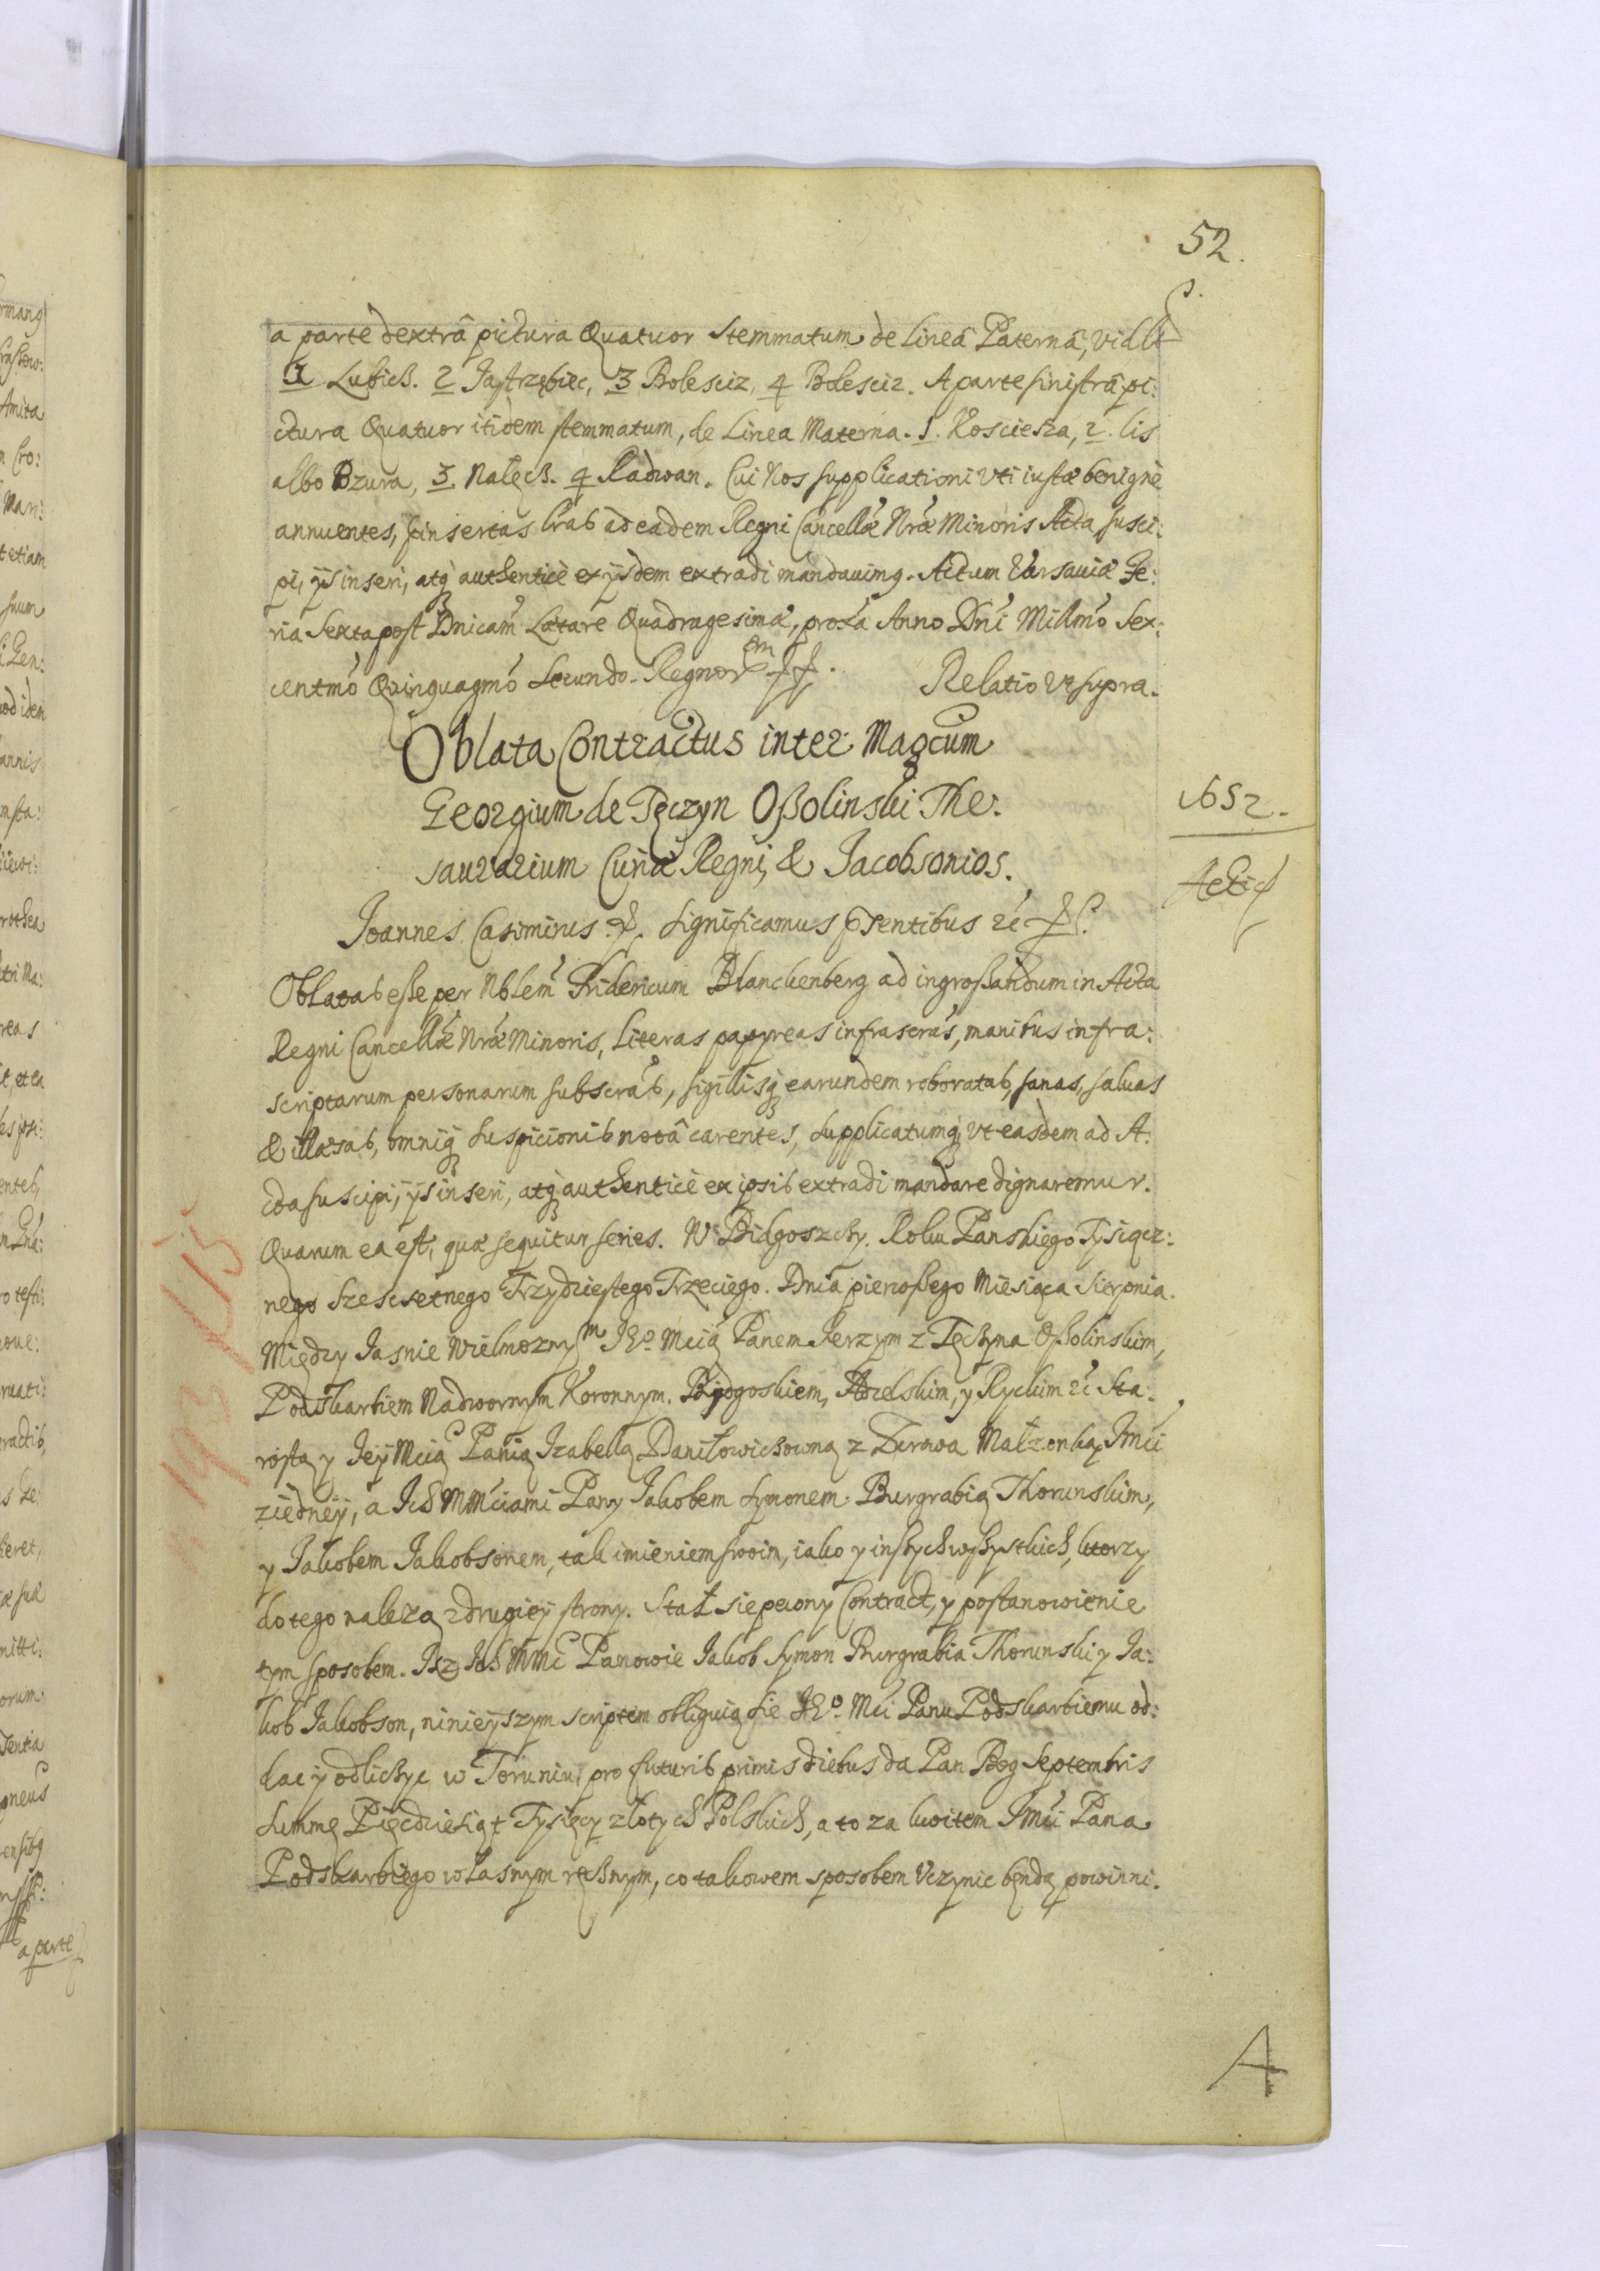 52.
a parte dextrâ pictura Quatuor Stemmatum de Lineâ Paternâ, vidlt
1 Lubicz. 2 Jastrzębiec, 3 Bolesciz, 4 Bolesciz. A parte sinistrâ pi:
ctura Quatuor itidem stemmatum, de Linea Materna. 1. Koscieszа, 2. Lis
albo Bzura, 3. Nałęcz. 4 Radwan. Cui Nos supplicationi uti iustæ benignè
annuentes, pinsertas lras ad eadem Regni Cancellæ Nræ Minoris Acta susci:
pi, ijs inseri, atq authenticè ex ijsdem extradi mandauimq. Actum Varsauiæ Fe:
ria Sexta post Dnicam Lætare Quadragesimæ, proxa Anno Dni Millmo Sex:
centmo Quinquagmo Secundo. Regnor Relatio vt supra.
Oblata Contractus inter Magcum
Georgium de Tęczyn Oßolinski The:
saurarium Curiæ Regni, & Jacobsonios.
1652.
Joannes Casimirus &. Significamus pntibus &c
Oblatas eße per Nblem Fridericum Blanckenberg ad ingroßandum in Acta
Regni Cancellæ Nræ Minoris, Literas papyreas infrascras, manibus infra:
scriptarum personarum subscras, sigillisq earundem roboratas, sanas, saluas
& illæsas, omniq suspicionis notâ carentes, Supplicatumq vt easdem ad A:
cta suscipi, ijs inseri, atq authenticè ex ipsis extradi mandare dignaremur.
Quarum ea est, quæ sequitur series. W Bidgoszczy. Roku Panskiego Tysiącz:
nego Szescsetnego Trzydziestego Trzeciego. Dnia pierwßego Miesiąca Sierpnia.
Między Jasnie Wielmoznym Jeo Mcią Panem Jerzym z Tęczyna Oßolinskim,
Podskarbiem Nadwornym Koronnym. Bydgoskiem, Adzelskim, y Ryckim &c Sta:
rostą y Jey Mcią Panią Izabellą Daniłowiczowną z Zurowa Małzonką Jmci
z iedney, a Ich Mmciami Pany Jakobem Symonem Burgrabią Thorunskim,
y Jakobem Jakobsonem, tak imieniem swoim, iako y inszych wszystkich, ktorzy
do tego nalezą z drugiey strony. Stał sie pewny Contract, y postanowienie
tym sposobem. Isz Ich Mmc Panowie Jakob Symon Burgrabia Thorunski y Ja:
kob Jakobson, ninieyszym scriptem obliguią sie Jeo Mci Panu Podskarbiemu od:
dac y odliczyc w Toruniu, pro futuris primis diebus da Pan Bog Septembris
Summę Pięcdziesiąt Tysięcy złotych Polskich, a to za kwitem Jmci Pana
Podskarbiego własnym ręcznym, co takowem sposobem Uczynic będą powinni.
A